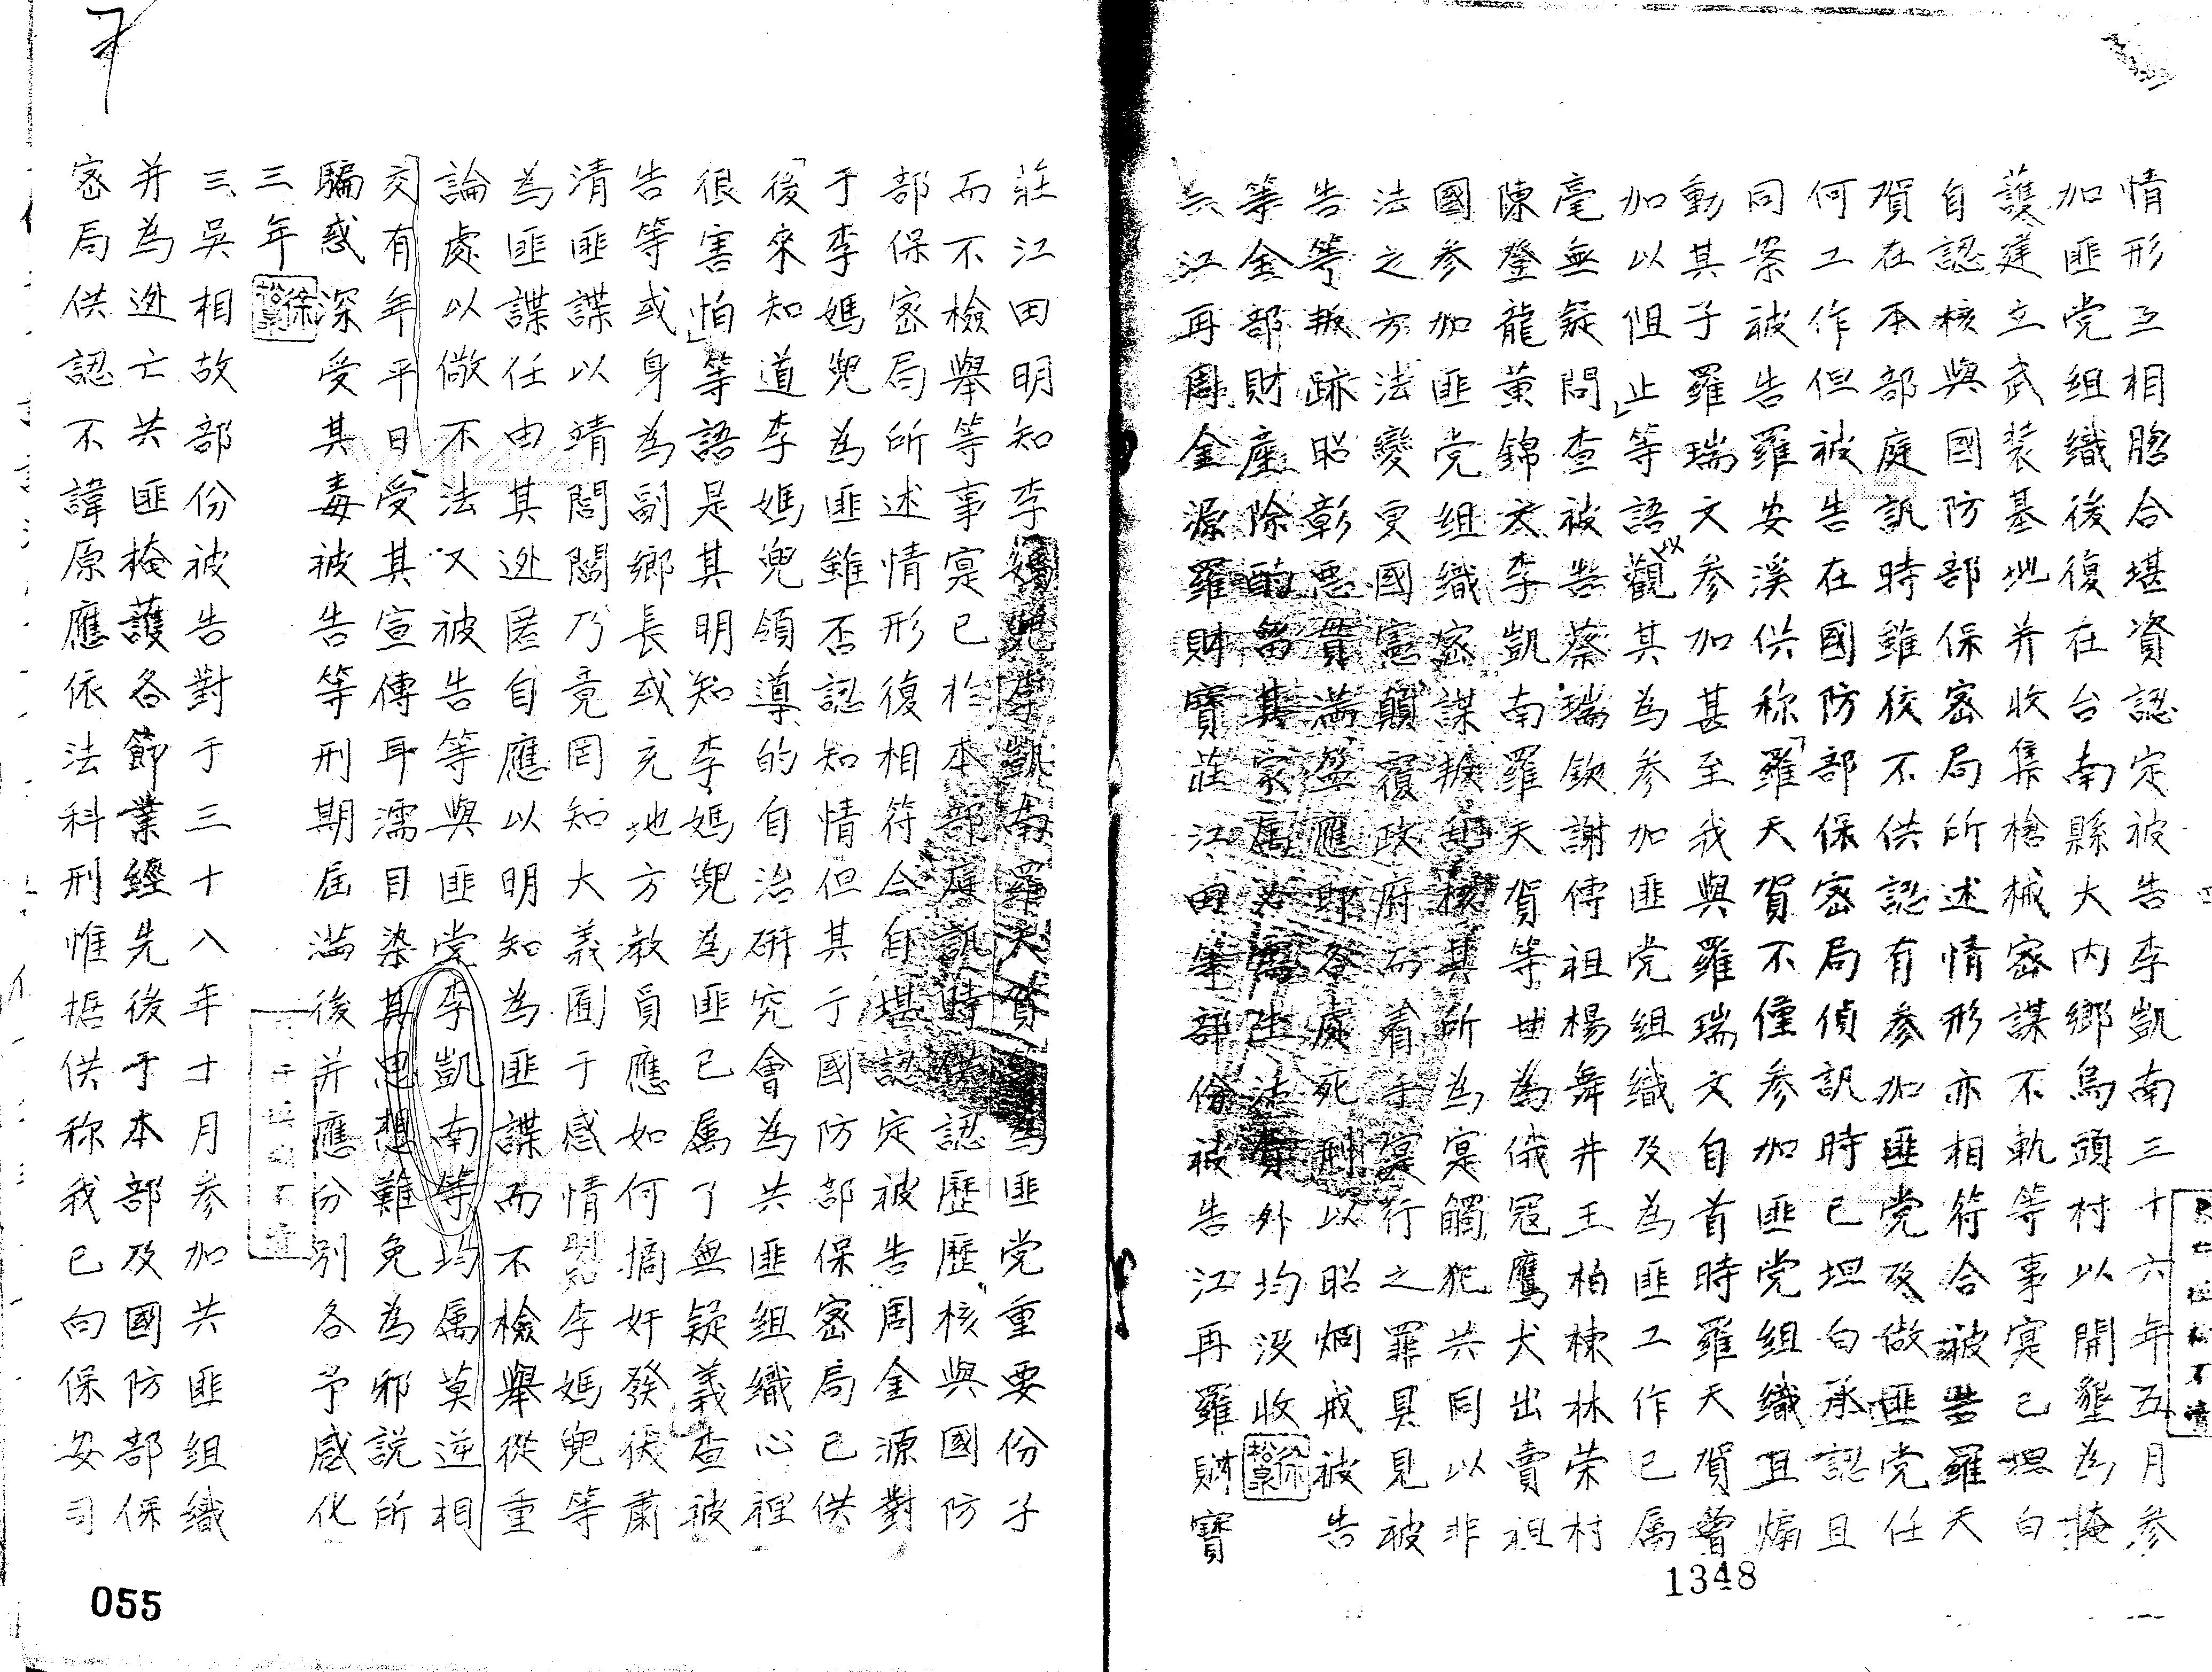 情形互相脗合堪資認定被告李凱南三十六年五月參
加匪党組織後復在台南縣大内鄉烏頭村以開墾為掩
護建立武装基地并收集槍械密謀不軌等事寔已坦白
自認核與國防部保密局所述情形亦相符合被告羅天
賀在本部庭訊時雖狡不供認有參加匪党及做匪党任
何工作但被告在國防部保密局偵訊時已坦白承認且
同案被告羅安溪供称「羅天賀不僅參加匪党組織且煽
動其子羅瑞文參加甚至我與羅瑞文自首時羅天賀曾
加以阻止」等語以觀其為參加匪党組織及為匪工作已属
毫無疑問查被告蔡瑞欽謝傳祖楊舞井王柏棟林荣村
陳登龍黄錦衣李凱南羅天賀等甘為俄寇鷹犬出賣祖
國參加匪党組織密謀叛乱核其所為寔觸犯共同以非
法之方法變更國憲顛覆政府而着手寔行之罪具見被
告等叛跡昭彰惡貫滿盈應即各處死刑以昭烱戒被告
等全部財產除酌留其家屬必需生活費外均没收
吳江再周金源羅財寶莊江田等部份被告江再羅財寶
莊江田明知李媽兜李凱南羅天賀等為匪党重要份子
而不檢舉等事寔已於本部庭訊時供認歷歷核與國防
部保密局所述情形復相符合自堪認定被告周金源對
于李媽兜為匪雖否認知情但其于國防部保密局已供
「後來知道李媽兜領導的自治研究會為共匪組織心裡
很害怕」等語是其明知李媽兜為匪已属了無疑義查被
告等或身為副鄉長或充地方教員應如何摘奸發伏肅
清匪諜以靖閭閻乃竟罔知大義囿于感情明知李媽兜等
為匪諜任由其迯匿自應以明知為匪諜而不檢舉從重
論處以儆不法又被告等與匪党李凱南等均属莫逆相
交有年平日受其宣傳耳濡目染其思想難免為邪説所
騙惑深受其毒被告等刑期屆滿後并應分別各予感化
三年
三、吳相故部份被告對于三十八年十月參加共匪組織
并為迯亡共匪掩護各節業經先後于本部及國防部保
密局供認不諱原應依法科刑惟据供称我已向保安司
055
1348